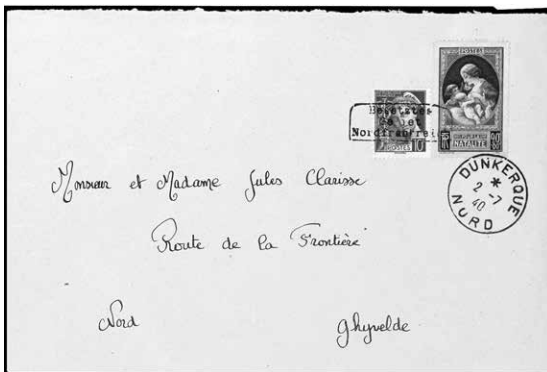 POSTES
Besetztes
Gebiet
Nordfrankreich
POSTES 10
NATALITÉ
DUNKERQUE
2 -7
40
NORD
Monsieur et Madame Jules Clarisse
Route de la Frontière
Nord Ghyvelde